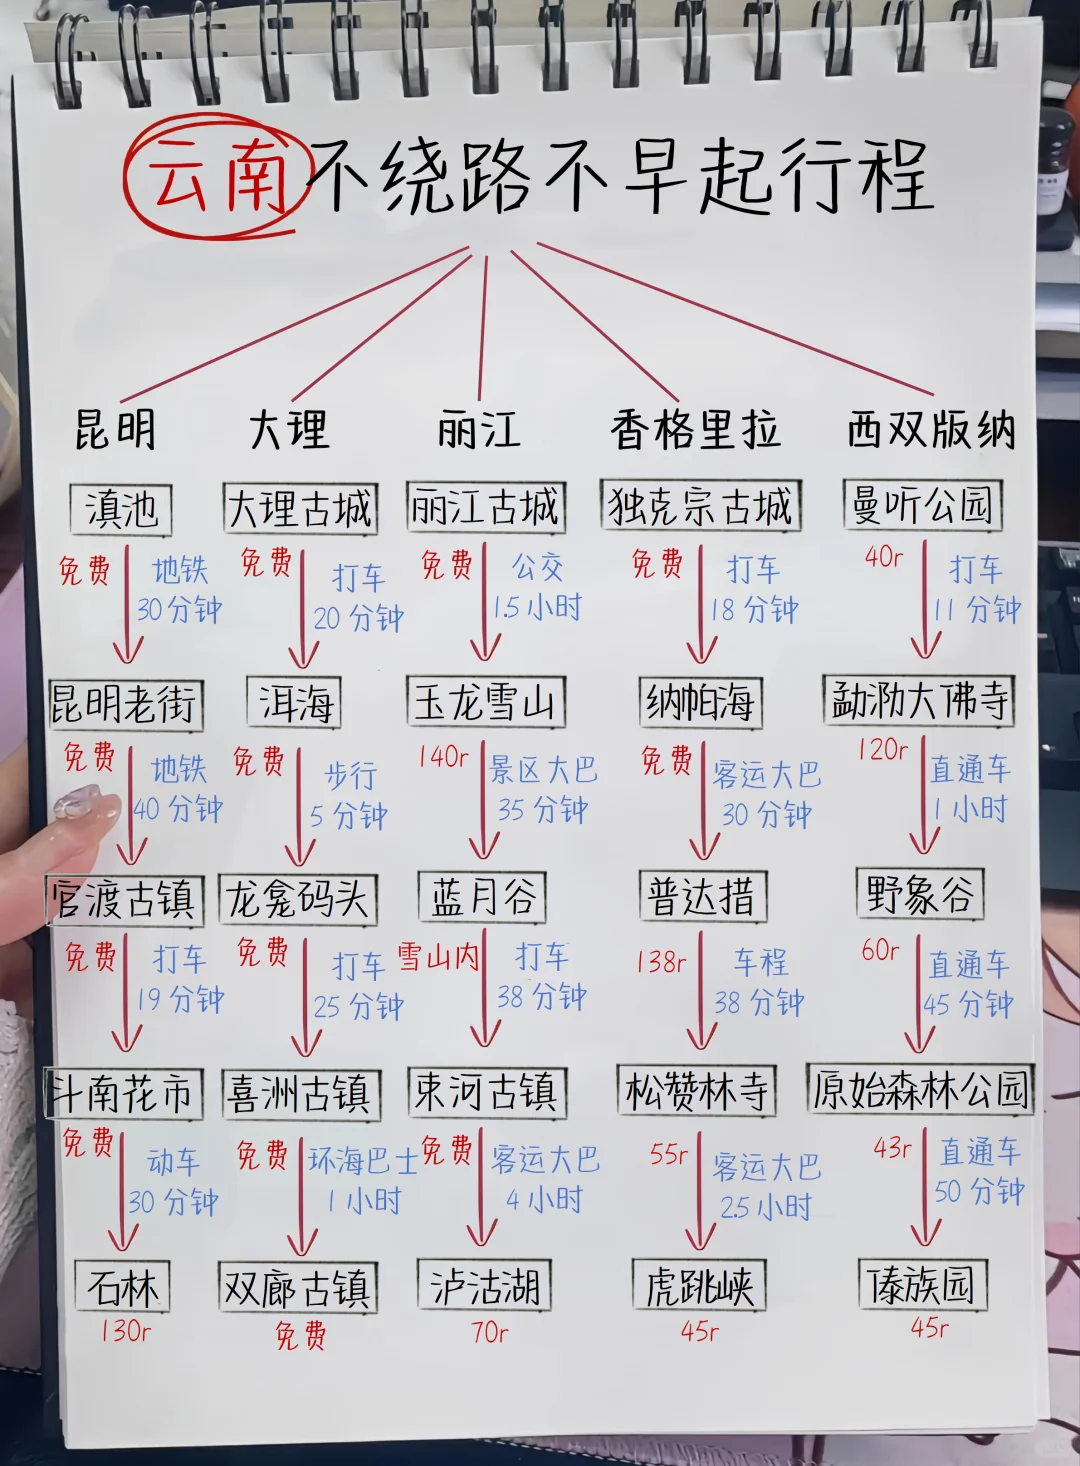 云南不绕路不早起行程
昆明
滇池
免费
地铁
30分钟
昆明老街
免费
地铁
40分钟
官渡古镇
免费
打车
19分钟
斗南花市
免费
动车
30分钟
石林
130r
大理
大理古城
免费
打车
20分钟
洱海
免费
步行
5分钟
龙龛码头
免费
打车
25分钟
喜洲古镇
免费
环海巴士
1小时
双廊古镇
免费
丽江
丽江古城
免费
公交
1.5小时
玉龙雪山
140r
景区大巴
35分钟
蓝月谷
雪山内
打车
38分钟
束河古镇
免费
客运大巴
4小时
泸沽湖
70r
香格里拉
独克宗古城
免费
打车
18分钟
纳帕海
免费
客运大巴
30分钟
普达措
138r
车程
38分钟
松赞林寺
55r
客运大巴
2.5小时
虎跳峡
45r
西双版纳
曼听公园
40r
打车
11分钟
勐泐大佛寺
120r
直通车
1小时
野象谷
60r
直通车
45分钟
原始森林公园
43r
直通车
50分钟
傣族园
45r